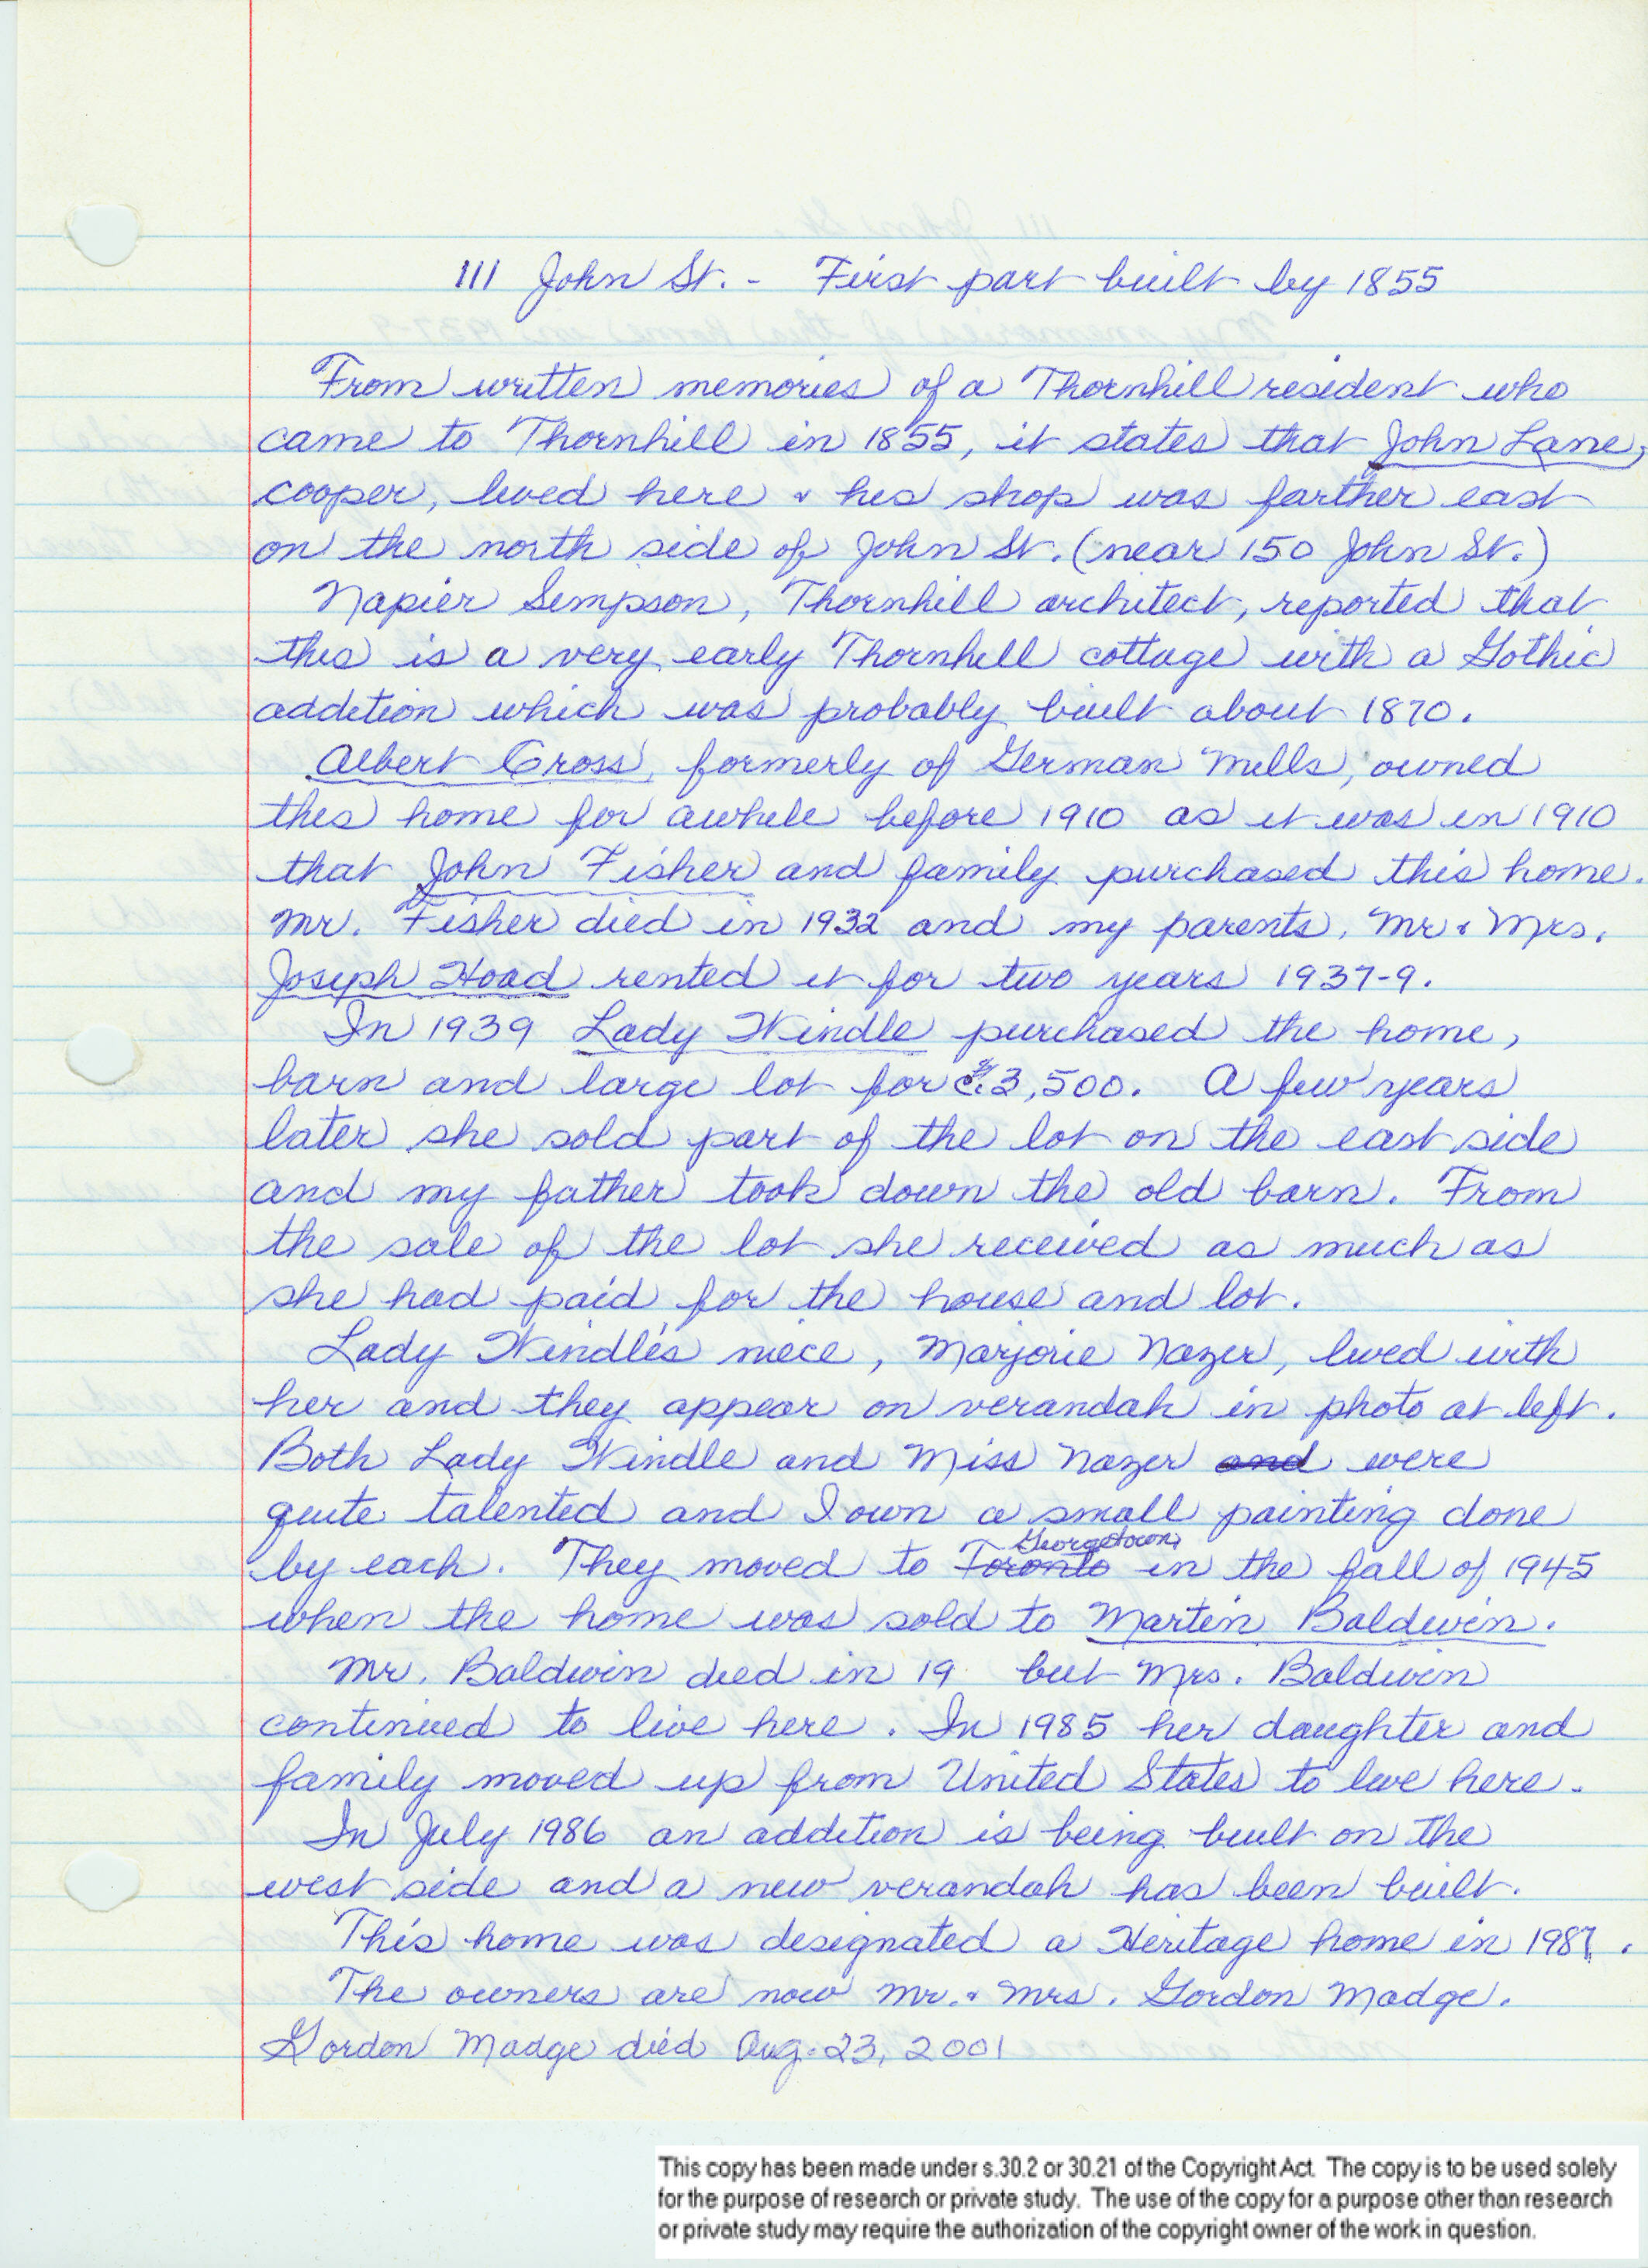 111 John St. - First part built by 1855
From written memories of a Thornhill resident who
came to Thornhill in 1855, it states that John Lane,
cooper, lived here & his shop was farther east
on the north side of John St. (near 150 John St.)
Napier Simpson, Thornhill architect, reported that
this is a very early Thornhill cottage with a Gothic
addition which was probably built about 1870.
Albert Cross, formerly of German Mills, owned
this home for awhile before 1910 as it was in 1910
that John Fisher and family purchased this home.
Mr. Fisher died in 1932 and my parents, Mr & Mrs.
Joseph Hoad rented it for two years 1937-9.
In 1939 Lady Windle purchased the home,
barn and large lot for $3,500. A few years
later she sold part of the lot on the east side
and my father took down the old barn. From
the sale of the lot she received as much as
she had paid for the house and lot.
Lady Windle's niece, Marjorie Nazer, lived with
her and they appear on verandah in photo at left.
Both Lady Windle and Miss Nazer and were
quite talented and I own a small painting done
Georgetown
by each. They moved to Toronto in the fall of 1945
when the home was sold to Martin Baldwin.
Mr. Baldwin died in 19 but Mrs. Baldwin
continued to live here. In 1985 her daughter and
family moved up from United States to live here.
In July 1986 an addition is being built on the
west side and a new verandah has been built.
This home was designated a Heritage home in 1987.
The owners are now Mr. & Mrs. Gordon Madge.
Gordon Madge died Aug. 23, 2001
This copy has been made under s.30.2 or 30.21 of the Copyright Act. The copy is to be used solely
for the purpose of research or private study. The use of the copy for a purpose other than research
or private study may require the authorization of the copyright owner of the work in question.